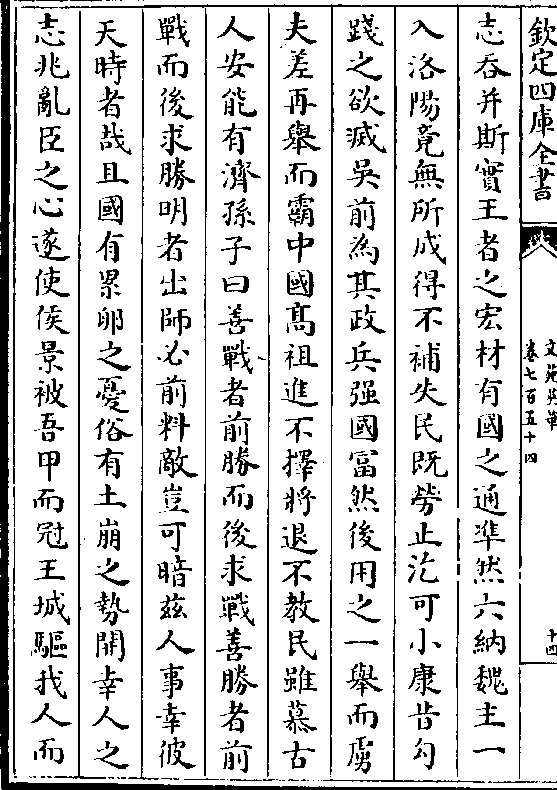 欽定四庫全書
文苑英華
卷七百五十四
十四
志吞并斯實王者之宏材有國之通準然六納魏主一
入洛陽竟無所成得不補失民既勞止汔可小康昔勾
踐之欲滅吳前為其政兵强國富然後用之一舉而虜
夫差再舉而霸中國髙祖進不擇將退不教民雖慕古
人安能有濟孫子曰善戰者前勝而後求戰善勝者前
戰而後求勝明者出師必前料敵豈可暗兹人事幸彼
天時者哉且國有累卵之憂俗有土崩之勢開幸人之
志兆亂臣之心遂使侯景被吾甲而冠王城驅我人而